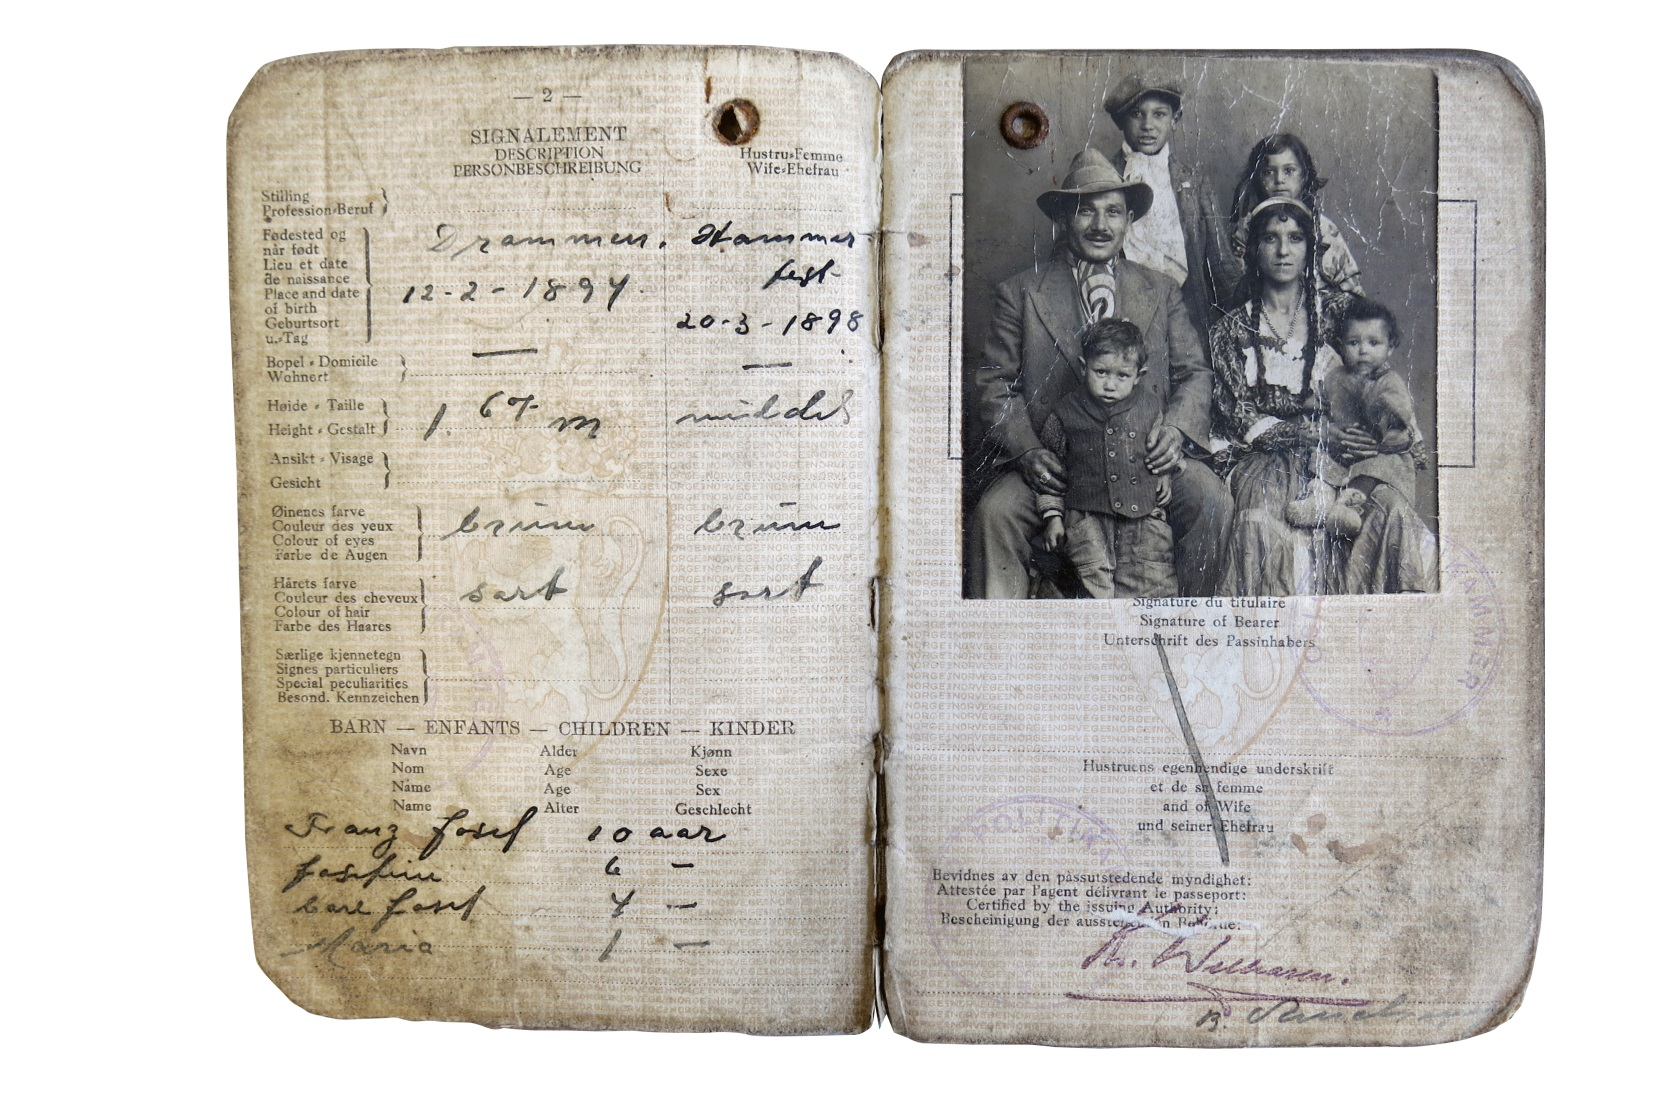 — 2 —
SIGNALEMENT
DESCRIPTION
PERSONBESCHREIBUNG
Hustru-Femme
Wife-Ehefrau
Stilling
Profession-Beruf
Fødested og
når født
Lieu et date
de naissance
Place and date
of birth
Geburtsort
u.-Tag
Drammen.
12-2-1897.
Hammer
fest
20-3-1898
Bopel - Domicile
Wohnort
—
—
Høide - Taille
Height - Gestalt
1.67 m
middels
Ansikt - Visage
Gesicht
Øinenes farve
Couleur des yeux
Colour of eyes
Farbe de Augen
brune
brune
Hårets farve
Couleur des cheveux
Colour of hair
Farbe des Haares
sort
sort
Særlige kjennetegn
Signes particuliers
Special peculiarities
Besond. Kennzeichen
BARN — ENFANTS — CHILDREN — KINDER
Navn Alder Kjønn
Nom Age Sexe
Name Age Sex
Name Alter Geschlecht
Franz Josef 10 aar
Josefine 6 —
Carl Josef 4 —
Maria 1 —
Signature du titulaire
Signature of Bearer
Unterschrift des Passinhabers
Hustruens egenhendige underskrift
et de sa femme
and of Wife
und seiner Ehefrau
POLITIKA
Bevidnes av den passutstedende myndighet:
Attestée par l'agent délivrant le passeport:
Certified by the issuing Authority:
Bescheinigung der